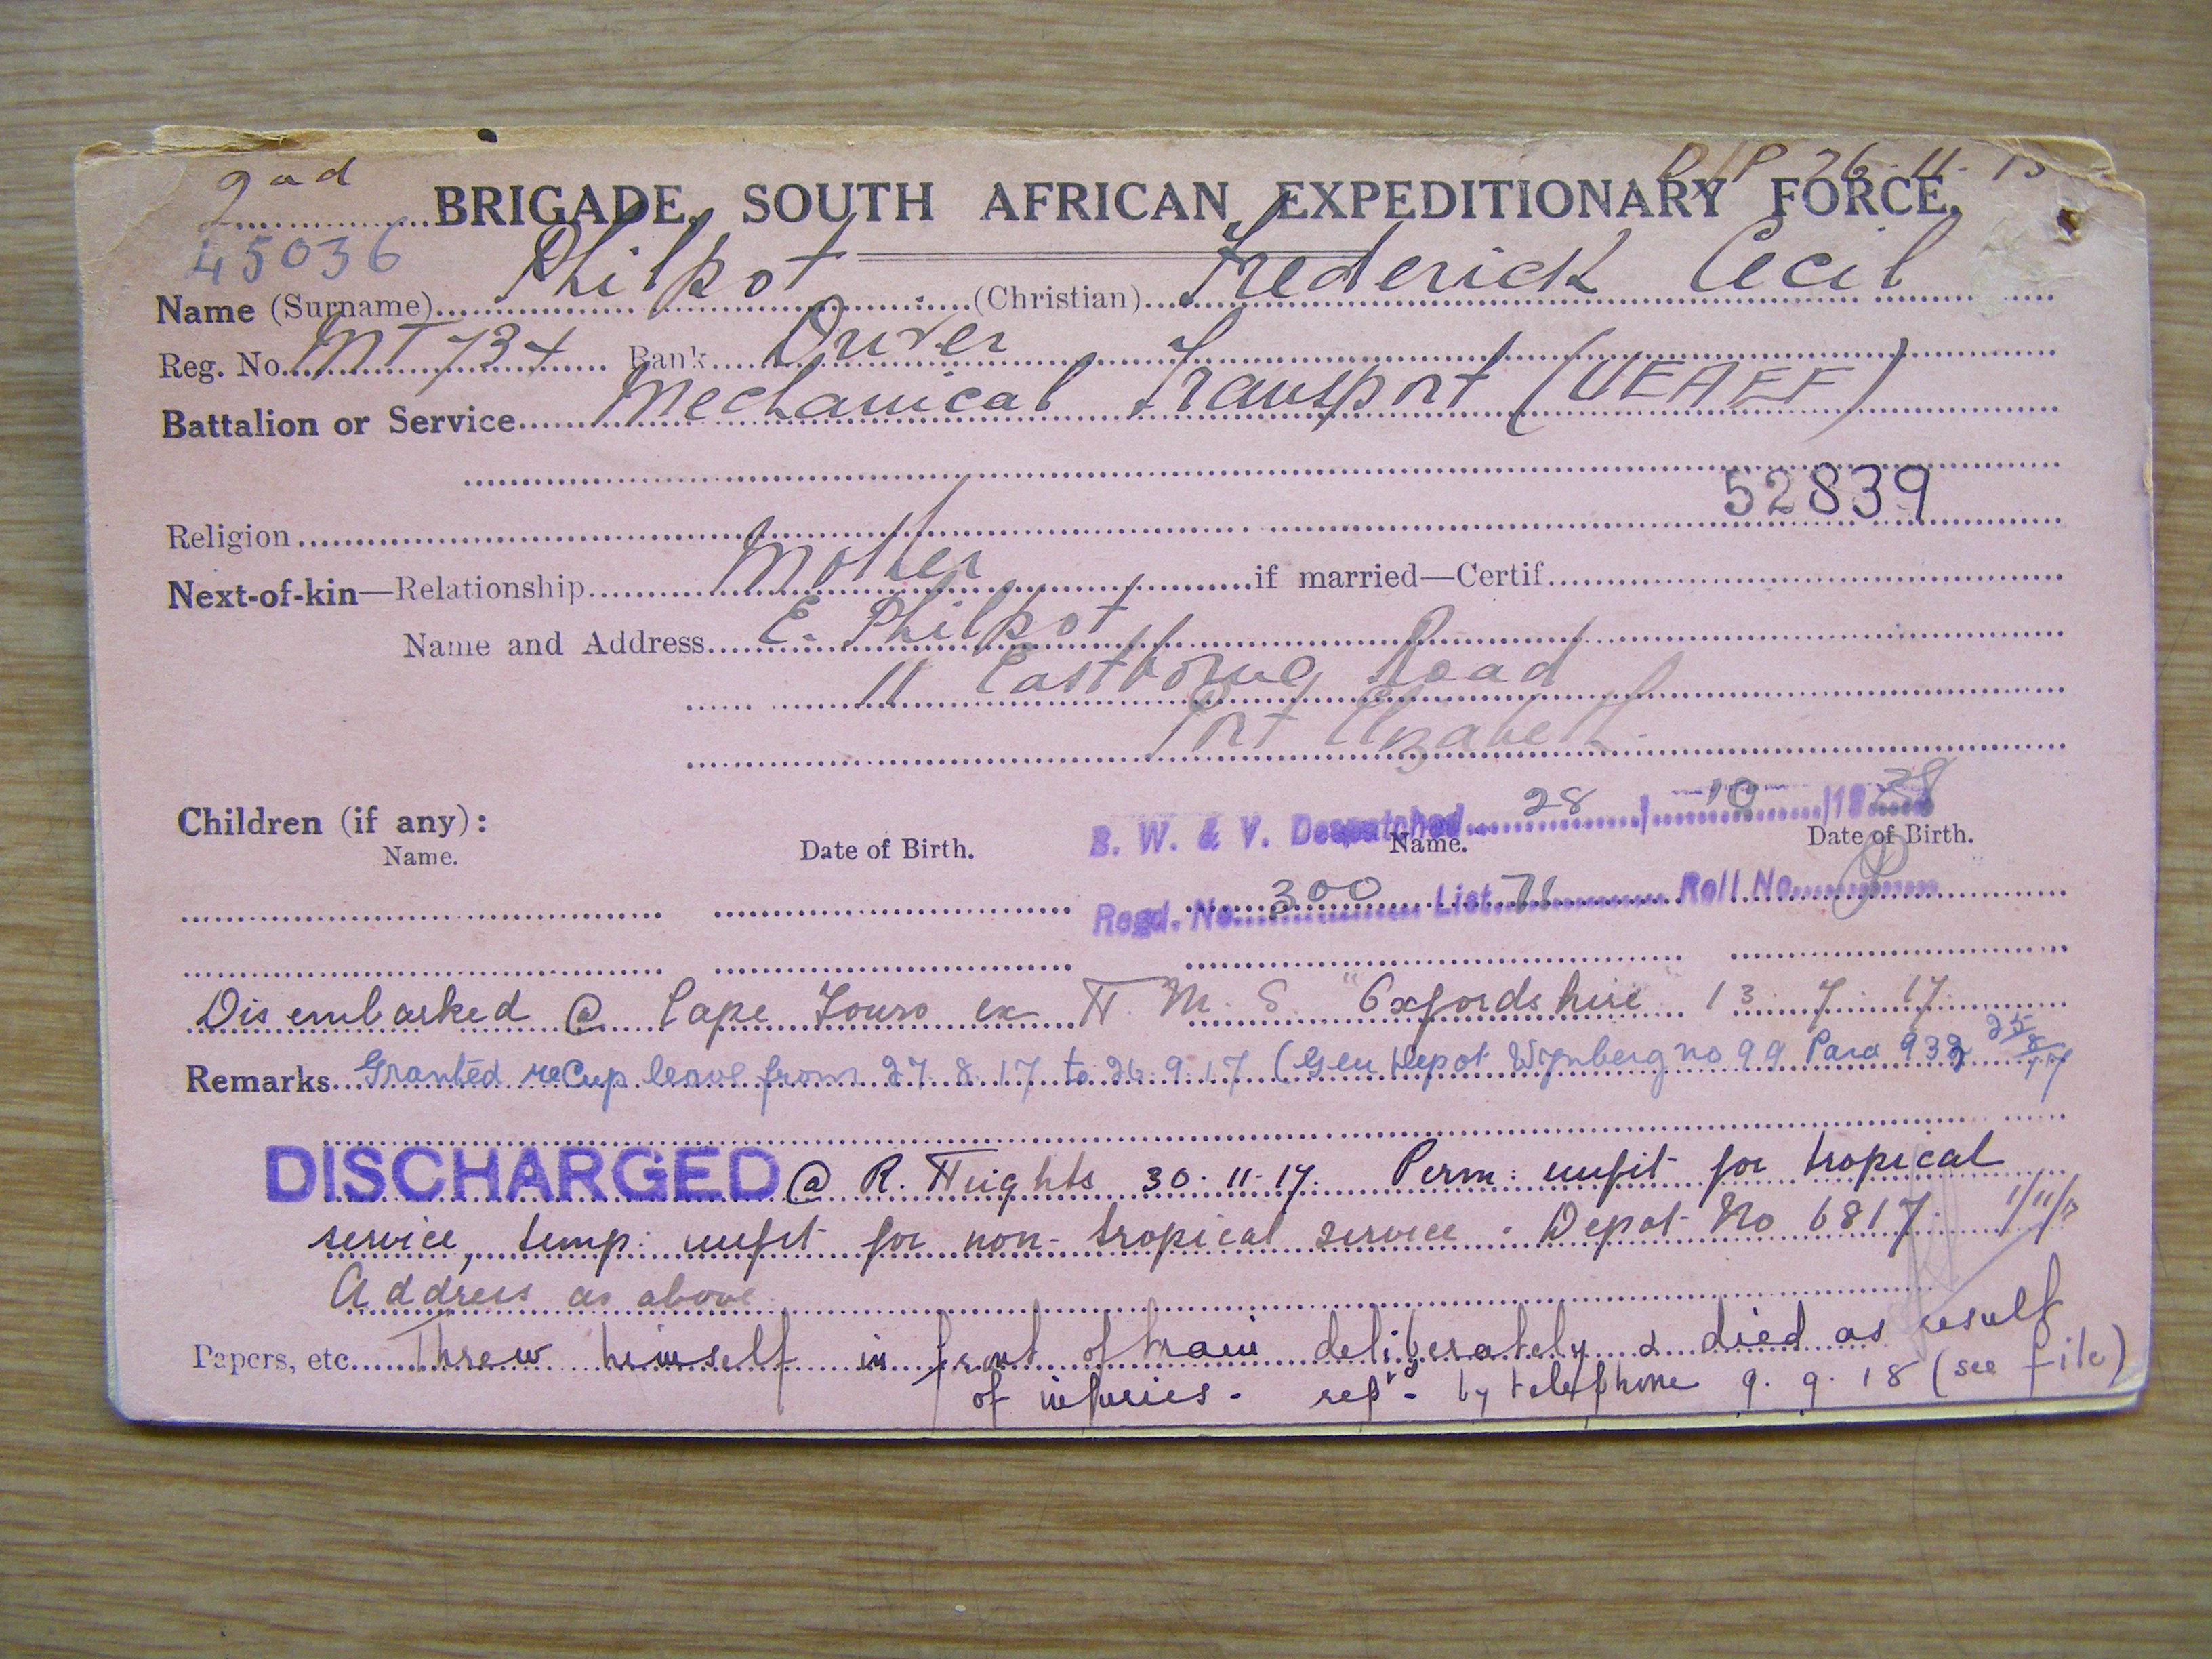 2nd BRIGADE, SOUTH AFRICAN EXPEDITIONARY FORCE.
45036
Name (Surname) Philpot (Christian) Frederick Cecil
Reg. No. MT 734 Rank Driver
Battalion or Service Mechanical Transport (UEAEF)
52839
Religion
Next-of-kin—Relationship Mother if married—Certif.
Name and Address E. Philpot
11 Eastborne Road
Port Elizabeth
B. W. & V. Despatched 28 / 10 /19
Children (if any):
Name. Date of Birth. Name. Date of Birth.
Regd. No. 300 List 71 Roll No.
Disembarked @ Cape Town ex H. M. S. "Oxfordshire" 13. 7. 17
Remarks Granted recup leave from 27.8.17 to 26.9.17 (Gen Depot Wynberg no 99 Para 932 25/8/17
DISCHARGED @ R. Heights 30.11.17. Perm: unfit for tropical
service, temp: unfit for non-tropical service. Depot No 6817 1/11/17
Address as above
Papers, etc. Threw himself in front of train deliberately & died as result
of injuries - repd - by telephone 9.9.18 (see file)